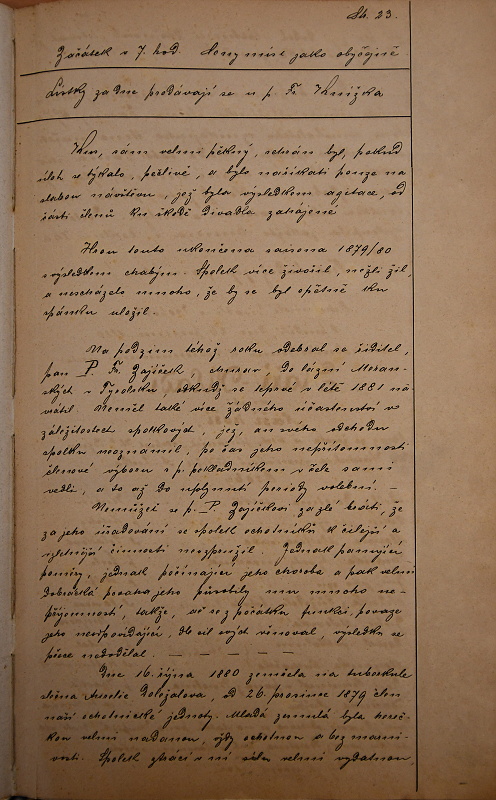 Str. 23.
Začátek v 7. hod. Ceny míst jako obyčejně
Lístky za dne prodávají se u p. Fr. Knížka
Kus, sám velmi pěkný, sehrán byl, pokud
úloh se týkalo, pečlivě, a bylo naříkati pouze na
slabou návštěvu, jež byla výsledkem agitace, od
části členů ku škodě divadla zahájené
Hrou touto ukončena saisona 1879/80
výsledkem chabým. Spolek více živořil, nežli žil,
a nescházelo mnoho, že by se byl opětně ku
spánku uložil.
Na podzim téhož roku odebral se ředitel,
pan P. Fr. Zajíček, churav, do lázní Meran-
ských v Tyrolsku, odkudž se teprvé v létě 1881 na-
vrátil. Neměl také více žádného účastenství ve
záležitostech spolkových, jež, an svého odchodu
spolku neoznámil, po čas jeho nepřítomnosti
členové výboru s p. pokladníkem v čele sami
vedli, a to až do uplynutí periody volební.
Nemůžeť se p. P. Zajíčkovi za zlé bráti, že
za jeho úřadování se spolek ochotníků k čilejší a
zletnější činnosti nezpružil. Jednak panující
poměry, jednak počínající jeho choroba a pak velmi
dobrácká povaha jeho působily mu mnoho ne-
příjemností, takže, ač se z počátku funkci, povaze
jeho neodpovídající, dle sil svých věnoval, výsledku se
přece nedodělal. — — — — —
Dne 16. října 1880 zemřela na tuberkule
slečna Aurelie Doležalova, od 26. prosince 1879 člen
naší ochotnické jednoty. Mladá zesnulá byla hereč-
kou velmi nadanou, vždy ochotnou a bez marni-
vosti. Spolek ztrácí v ní sílu velmi vydatnou